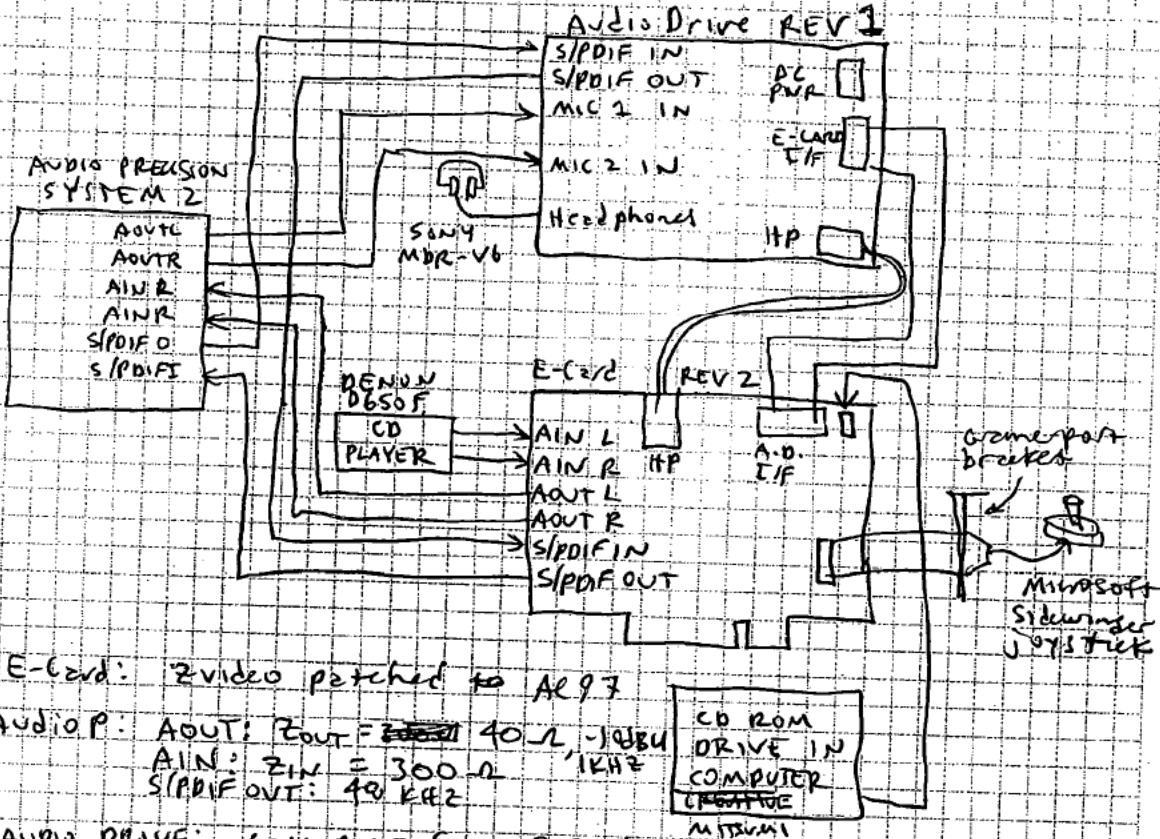 Audio Drive REV 1
S/PDIF IN
S/PDIF OUT
MIC 1 IN
MIC 2 IN
Headphones
DC
PWR
E-CARD
I/F
HP
AUDIO PRECISION
SYSTEM 2
AOUTL
AOUTR
AIN R
AINR
S/PDIF O
S/PDIFI
SONY
MDR-V6
DENON
D650F
CD
PLAYER
E-Card REV 2
AIN L
AIN R
AOUT L
AOUT R
S/PDIF IN
S/PDIF OUT
HP
A.D.
I/F
Gameport
bracket
Microsoft
Sidewinder
joystick
E-Card: Zvideo patched to AC97
AudioP: AOUT: ZOUT = 40Ω, -10dBu
1KHZ
AIN: ZIN = 300Ω
S/PDIF OUT: 48 KHZ
CD ROM
DRIVE IN
COMPUTER
CREATIVE
MITSUMI
AUDIO DRIVE: